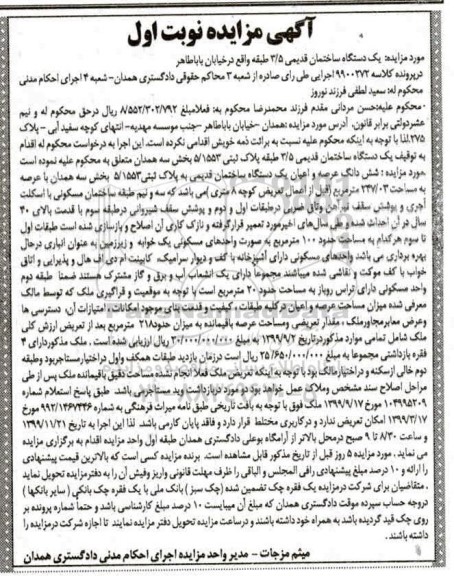 آگهی مزایده نوبت اول
مورد مزایده: یک دستگاه ساختمان قدیمی ۳/۵ طبقه واقع درخیابان باباطاهر
درپرونده کلاسه ۹۹۰۰۲۷۲ اجرایی طی رای صادره از شعبه ۳ محاکم حقوقی دادگستری همدان- شعبه ۴ اجرای احکام مدنی
محکوم له: سعید لطفی فرزند نوروز
محکوم علیه: حسن مردانی مقدم فرزند محمدرضا محکوم به: فعلامبلغ ۸/۵۵۲/۳۰۲/۷۹۲ ریال درحق محکوم له و نیم
عشردولتی برابر قانون. آدرس مورد مزایده: همدان -خیابان باباطاهر -جنب موسسه مهدیه- انتهای کوچه سفید آبی - پلاک
۲۷۵. لذا با توجه به اینکه محکوم علیه نسبت به برائت ذمه خویش اقدامی نکرده است. این اجرا به درخواست محکوم له اقدام
به توقیف یک دستگاه ساختمان قدیمی ۳/۵ طبقه پلاک ثبتی ۵/۱۵۵۳ بخش سه همدان متعلق به محکوم علیه نموده است
.مورد مزایده : شش دانگ عرصه و اعیان یک دستگاه ساختمان قدیمی به پلاک ثبتی ۵/۱۵۵۳ بخش سه همدان با عرصه
به مساحت ۲۳۷/۰۳ مترمربع (قبل از اعمال تعریض کوچه ۸ متری )می باشد که سه و نیم طبقه ساختمان مسکونی با اسکلت
آجری و پوشش سقف تیرآهن وطاق ضربی درطبقات اول و دوم و پوشش سقف شیروانی درطبقه سوم با قدمت بالای ۴۰
سال در آن احداث شده وطی سال‌های اخیر مورد تعمیر قرارگرفته و نازک کاری آن اصلاح و بازسازی شده است طبقات اول
تا سوم هرکدام به مساحت حدود ۱۰۰ مترمربع به صورت واحدهای مسکونی یک خوابه و زیرزمین به عنوان انباری درحال
بهره برداری می باشد واحدهای مسکونی دارای آشپزخانه با کف و دیوار سرامیک، کابینت ام دی اف هال و پذیرایی و اتاق
خواب با کف موکت و نقاشی شده میباشند مجموعا دارای یک انشعاب آب و برق و گاز مشترک هستند ضمنا طبقه دوم
واحد مسکونی دارای تراس روباز به مساحت حدود ۲۰ مترمربع است با توجه به موقعیت و قرارگیری ملک که توسط مالک
معرفی شده میزان مساحت عرصه و اعیان در کلیه طبقات، کیفیت و قدمت بنای موجود امکانات، امتیازات آن، دسترسی ها
وعرض معابر مجاورملک ، مقدار تعریضی ومساحت عرصه باقیمانده به میزان حدود۲۱۸ مترمربع بعد از تعریض ارزش کلی
ملک شامل تمامی موارد مذکور درتاریخ ۱۳۹۹/۹/۲ به مبلغ ۳۰/۰۰۰/۰۰۰/۰۰۰ ریال ارزیابی شده است . ملک مذکوردارای ۴
فقره بازداشتی مجموعا به مبلغ ۲۵/۶۵۰/۰۰۰/۰۰۰ ریال است درزمان بازدید طبقات همکف واول دراختیارمستاجربود وطبقه
دوم خالی ازسکنه و دراختیارمالک بود با توجه به اینکه تعریض ملک فعلا انجام نشده مساحت دقیق باقیمانده ملک پس از طی
مراحل اصلاح سند مشخص وملاک عمل خواهد بود در مورد بازداشت وید مستاجر می باشد. طبق پاسخ استعلام شماره
۱۰۴۹۹۵۲۰۹ مورخ ۱۳۹۹/۹/۱۷ ملک فوق با توجه به بافت تاریخی طبق نامه میراث فرهنگی به شماره ۹۹۲/۱۴۶۷۴۴۶ مورخ
۱۳۹۹/۳/۱۷ امکان تعریض ندارد و درکاربری مختلط قرار دارد و فاقد پایان کارمی باشد. لذا این اجرا به تاریخ ۱۳۹۹/۱۱/۲۱
و ساعت ۸/۳۰ تا ۹ صبح درمحل بالاتر از آرامگاه بوعلی دادگستری همدان طبقه اول واحد مزایده اقدام به برگزاری مزایده
می نماید . مورد مزایده ۵ روز قبل از تاریخ مذکور قابل مشاهده است. برنده مزایده کسی است که بالاترین قیمت پیشنهادی
را ارائه و ۱۰ درصد مبلغ پیشنهادی رافی المجلس و الباقی را ظرف مهلت قانونی واریز وفیش آن را به دفترمزایده تحویل نماید
. متقاضیان برای شرکت درمزایده یک فقره چک تضمین شده (چک سبز ) بانک ملی با یک فقره چک بانکی ( سایر بانکها )
دروجه حساب سپرده موقت دادگستری همدان که مبلغ آن میبایست ۱۰ درصد مبلغ کارشناسی باشد و حتما شماره پرونده بر
روی چک قید گردیده باشد به همراه خود داشته باشند و درساعت مزایده تحویل دفتر مزایده نمایند تا اجازه شرکت درمزایده را
داشته باشند.
میثم مزجات - مدیر واحد مزایده اجرای احکام مدنی دادگستری همدان